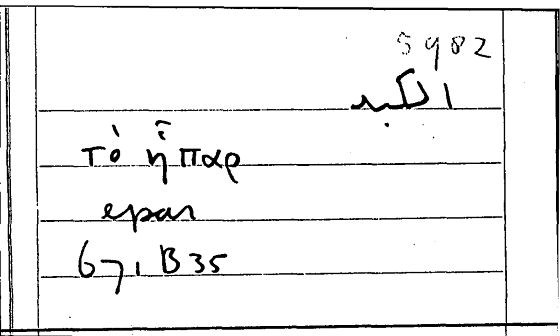 5982
الكبد
τὸ ἧπαρ
epar
671 B35